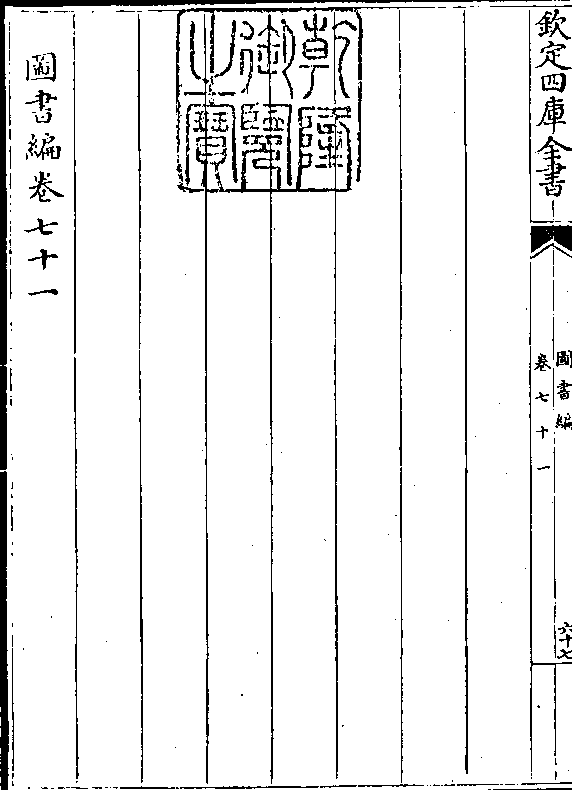 欽定四庫全書
圖書編
卷七十一
六十七
乾隆御覽之寶
圖書編卷七十一